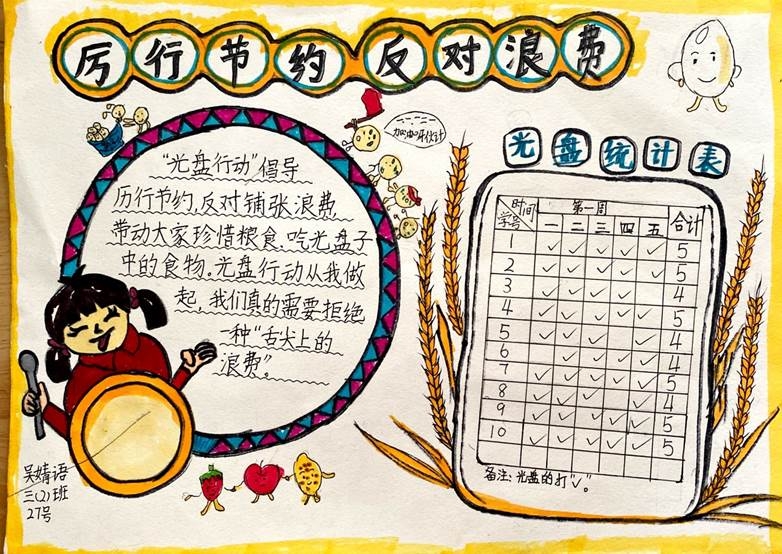 厉行节约 反对浪费
加油呀伙计
“光盘行动”倡导
厉行节约,反对铺张浪费
带动大家珍惜粮食、吃光盘子
中的食物。光盘行动从我做
起,我们真的需要拒绝
一种“舌尖上的
浪费”。
光盘统计表
时间 第一周 合计
学号 一 二 三 四 五
1 5
2 5
3 4
4 5
5 4
6 4
7 5
8 4
9 5
10 5
备注:光盘的打“√”。
吴婧语
三(2)班
27号